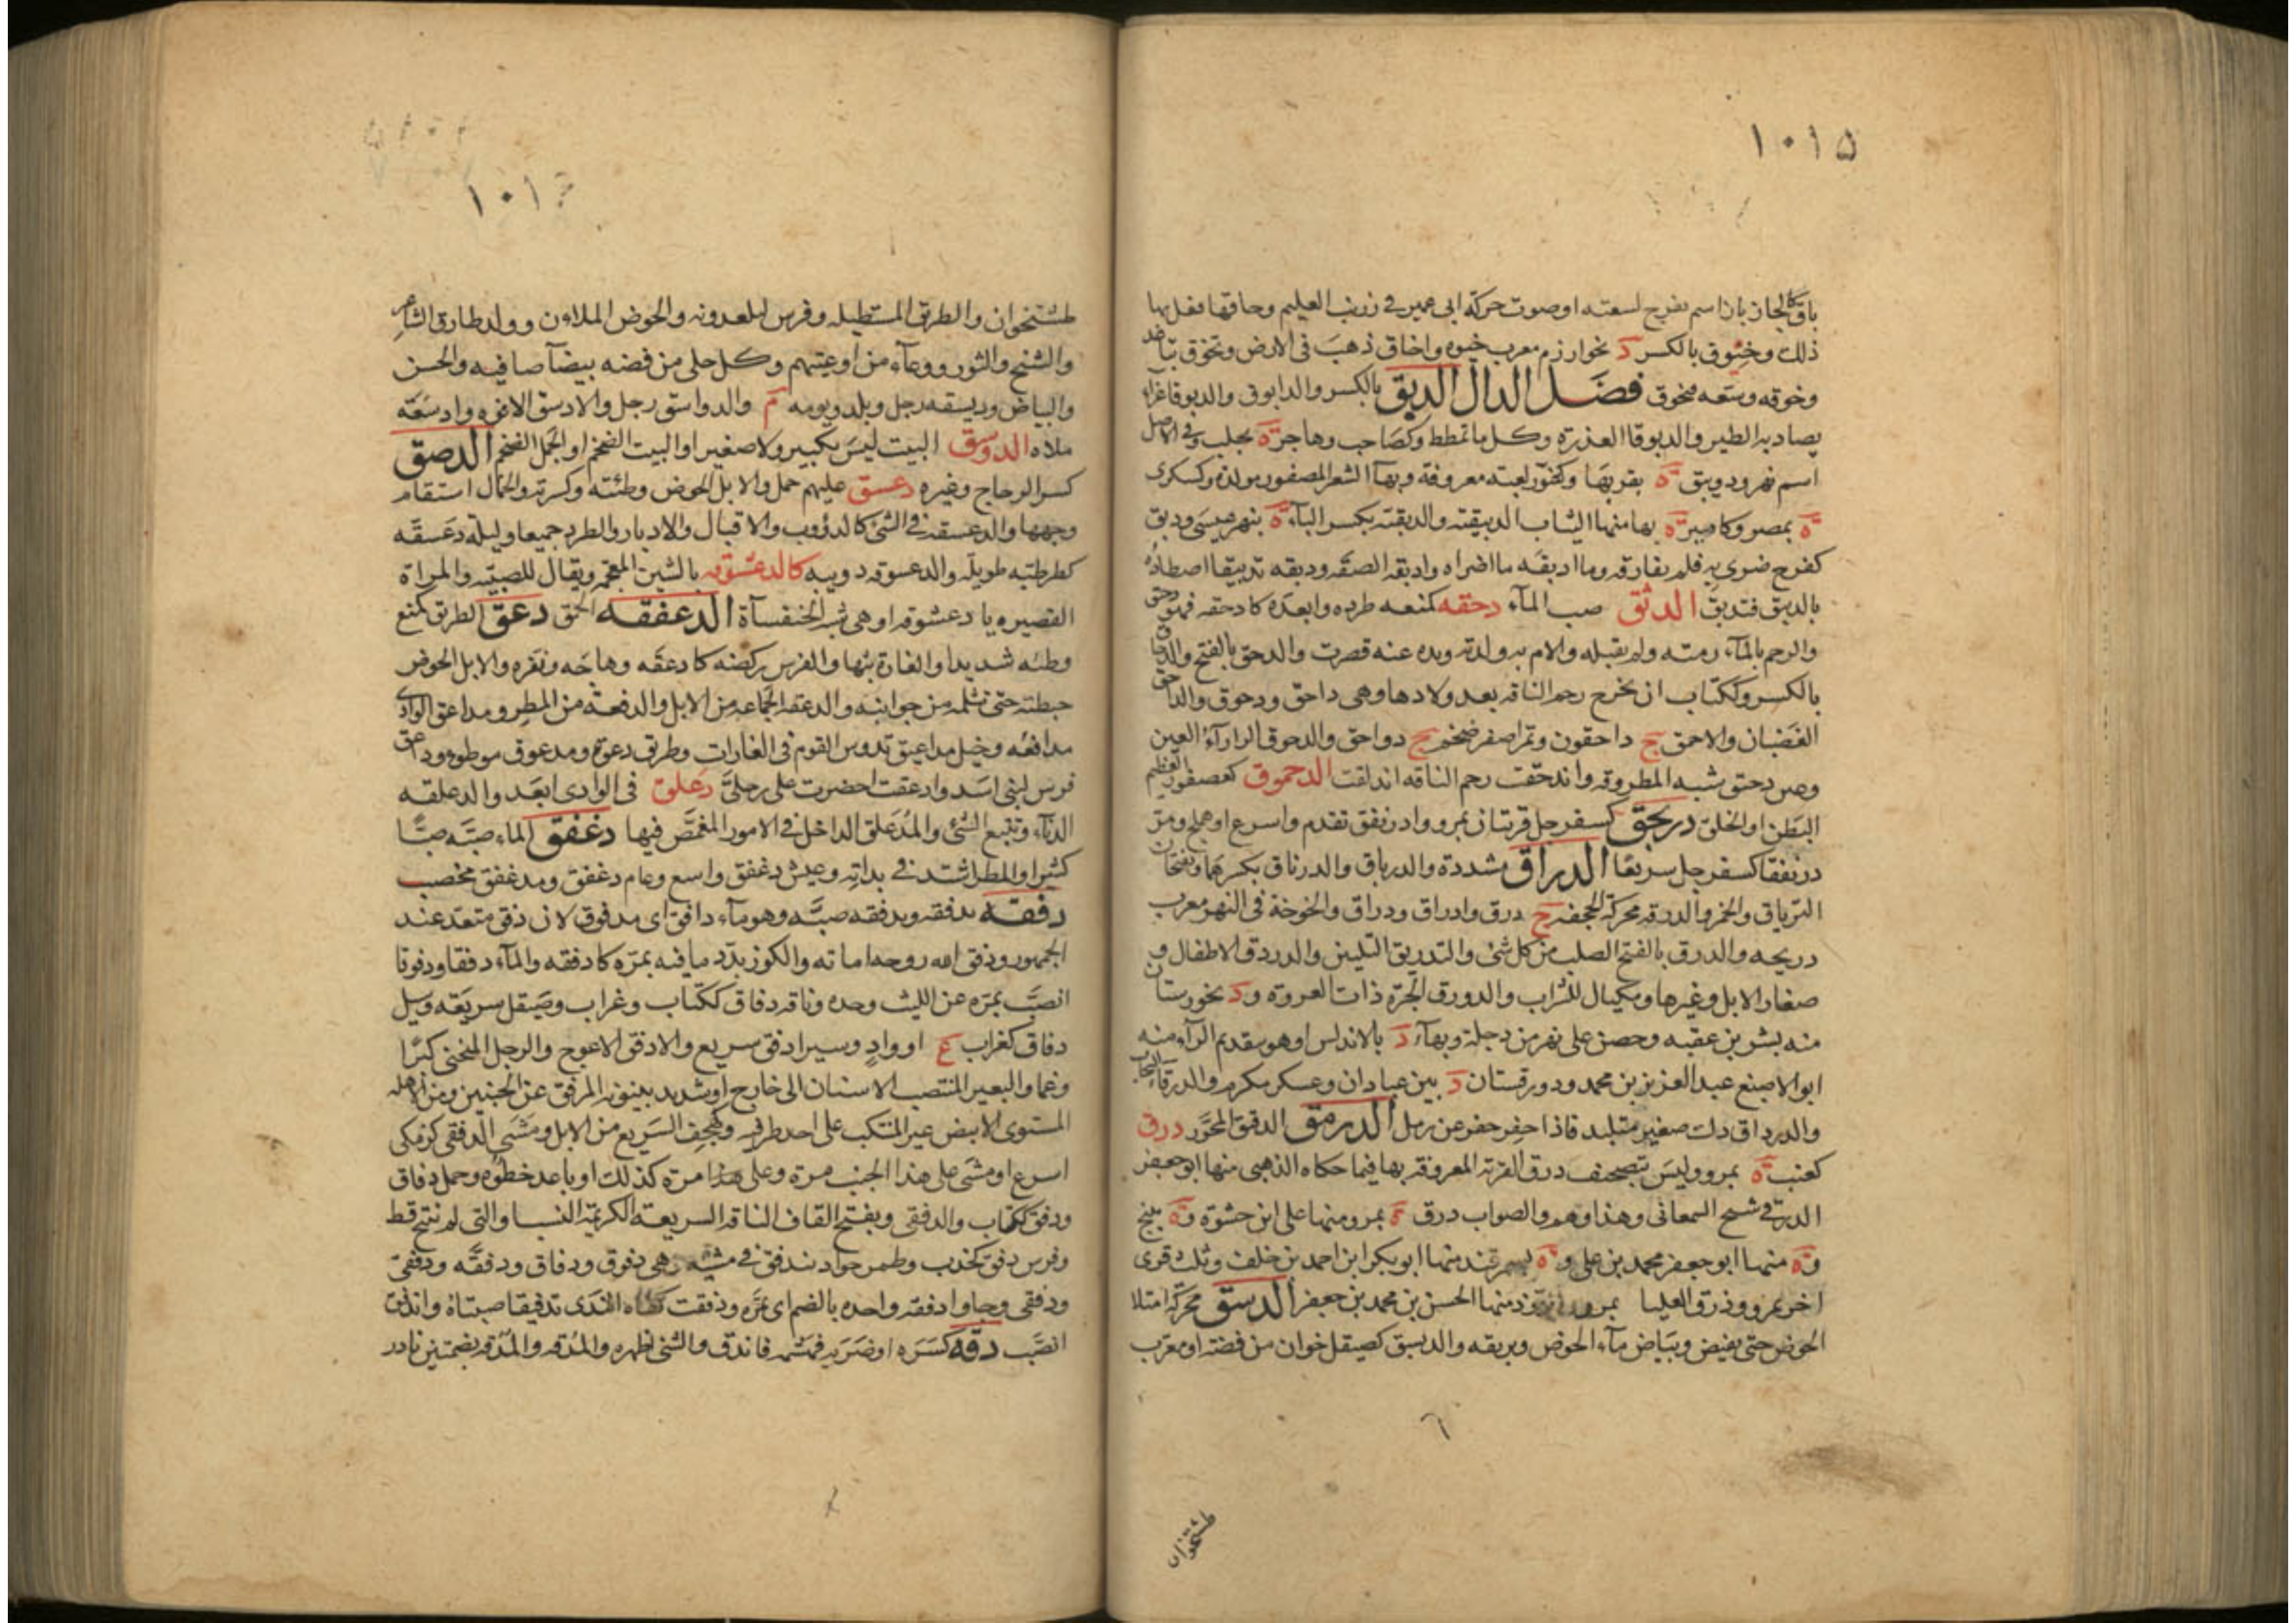 ١٠١٥
باق كالخازباز اسم لفرج لسعته او صوت حركة ابى عمير فى زرنب الفلهم وخاقها فعل بها
ذلك وخيوق بالكسر د بخوارزم معرب خيوه واخاق ذهب فى الارض وتخوق تباعد
وخوقه وسعه مخوق فصل الدال الدبق بالكسر والدابوق والدبوقا غراء
يصاد به الطير والدبوقا العذرة وكل ما تمطط وكصاحب وهاجر ة بحلب وفى الاصل
اسم نهر ودويبق ة بقربها وكتنور لعبة معروفة وبهآ الشعر المضفور مولدة وكسكرى
ة بمصر وكامير ة بها منها الثياب الدبيقية والدبقية بكسر البآء ة بنهر عيسى ودبق
كفرح ضرى به فلم يفارقه وما ادبقه ما اضراه وادبقه الصقه ودبقه تدبيقا اصطاده
بالدبق فتدبق الدثق صب المآء دحقه كمنعه طرده وابعده كادحقه فهو دحيق
والرحم بالمآء رمته ولم تقبله والام به ولدته ويده عنه قصرت والدحق بالفتح والدحاق
بالكسر وككتاب ان يخرج رحم الناقة بعد ولادها وهى داحق ودحوق والداحق
الغضبان والاحمق ج داحقون وتمر اصفر ضخم ج دواحق والدحوق الرارآء العين
وعين دحيق شبه المطروقة واندحقت رحم الناقة اندلقت الدحموق كعصفور العظيم
البطن او الخلق دريجق كسفرجل قريتان بمرو وادرنفق تقدم واسرع او هملج ومر
درنفقا كسفرجل سريعا الدراق مشددة والدرياق والدرياقة بكسرهما ويفتحان
الترياق والخمر والدرقة محركة الحجفة ج درق وادراق ودراق والخوخة فى النهر معرب
دريچه والدرق بالفتح الصلب من كل شئ والتدريق التليين والدردق الاطفال و
صغار الابل وغيرها ومكيال للشراب والدورق الجرة ذات العروة ود بخورستان
منه بشر بن عقبه وحصن على نهر من دجلة وبهآء د بالاندلس او هو بتقديم الرآء منه
ابو الاصبغ عبد العزيز بن محمد ودورقستان د بين عبادان وعسكر مكرم والدرقاء السحاب
والدرداق دك صغير متلبد فاذا احفر حفر عن رمل الدرمق الدقيق المحور درق
كعنب ة بمرو وليس بتصحيف درق القرية المعروفة بها فيما حكاه الذهبى منها ابو جعفر
الدرقى شيخ السمعانى وهذا وهم والصواب درق ة بمرو ومنها على ابن حشوة وة ببلخ
وة منها ابو جعفر محمد بن على وة بسمرقند منها ابو بكر ابن احمد بن خلف وثلث قرى
اخر بمرو وذرق العليا بمرو منها الحسن بن محمد بن جعفر الدسق محركة امتلا
الحوض حتى يفيض وبياض مآء الحوض وبريقه والديسق كصيقل خوان من فضة او معرب
طشتخوان
١٠١
طشتخوان والطريق المستطيلة وفرس لبلعدوية والحوض الملاءن ووالد طارق الشاعر
والشيخ والثور ووعآء من اوعيتهم وكل حلى من فضه بيضآ صافيه والحسن
والبياض وديسقه رجل وبلد ويومه م والدواسق رجل والادسق الافوه وادسقه
ملاه الدوسق البيت ليس بكبير ولا صغير او البيت الضخم او الجمل الضخم الدصق
كسر الزجاج وغيره دعسق عليهم حمل والابل الحوض وطئته وكسرته والجمال استقام
وجهها والدعسقة فى الشئ كالدؤوب والاقبال والادبار والطرد جميعا وليلة دعسقه
كطرطبه طويلة والدعسوقة دويبه كالدعشوقة بالشين المعجمة ويقال للصبيه والمراة
القصيره يا دعشوقة او هى شبه الخنفسآة الدعفقه الحمق دعق الطريق كمنع
وطئه شديدا والغارة بثها والفرس ركضه كادعقه وهاجه ونفره والابل الحوض
خبطته حتى تثلمه من جوانبه والدعقة الجماعة من الابل والدفعة من المطر ومداعق الوادى
مدافعه وخيل مداعيق تدوس القوم فى الغارات وطريق دعق ومدعوق موطوء وداعق
فرس لبنى اسد وادعقت احضرت على رجلى دعلق فى الوادى ابعد والدعلقه
الدنآءة وتتبع الشئ والمدعلق الداخل فى الامور المغمض فيها دغفق الماء صبه صبا
كثيرا والمطر اشتد فى بداته وعيش دغفق واسع وعام دغفق ومدغفق مخصب
دفقه يدفقه ويدفقه صبه وهو مآء دافق اى مدفوق لان دفق متعد عند
الجمهور ودفق الله روحه اماته والكوز بدد ما فيه بمرة كادفقه والمآء دفقا ودفوقا
انصب بمرة عن الليث وحده وناقة دفاق ككتاب وغراب وصيقل سريعه وسيل
دفاق كغراب ع او واد وسير ادفق سريع والادفق الاعوج والرجل المنحنى كبرا
وغما والبعير المنتصب الاسنان الى خارج او شديد بينونة المرفق عن الجنبين ومن الاهله
المستوى الابيض غير المتنكب على احد طرفيه وكهجف السريع من الابل ومشى الدفقى كزمكى
اسرع او مشى على هذا الجنب مرة وعلى هذا مرة كذلك او باعد خطوه وجمل دفاق
ودفق ككتاب والدفقى وبفتح القاف الناقة السريعة الكريمة النسب والتى لم تنتج قط
وفرس دفق كخدب وطمر جواد يندفق فى مشيه وهى دفوق ودفاق ودفقه ودفقى
ودفقى وجاوا دفقة واحدة بالضم اى بمرة ودفقت كفاه الندى تدفيقا صبتاه واندفق
انصب دقه كسره او ضربه فهشمه فاندق والشئ اظهره والمدقه والمدق بضمتين نادر